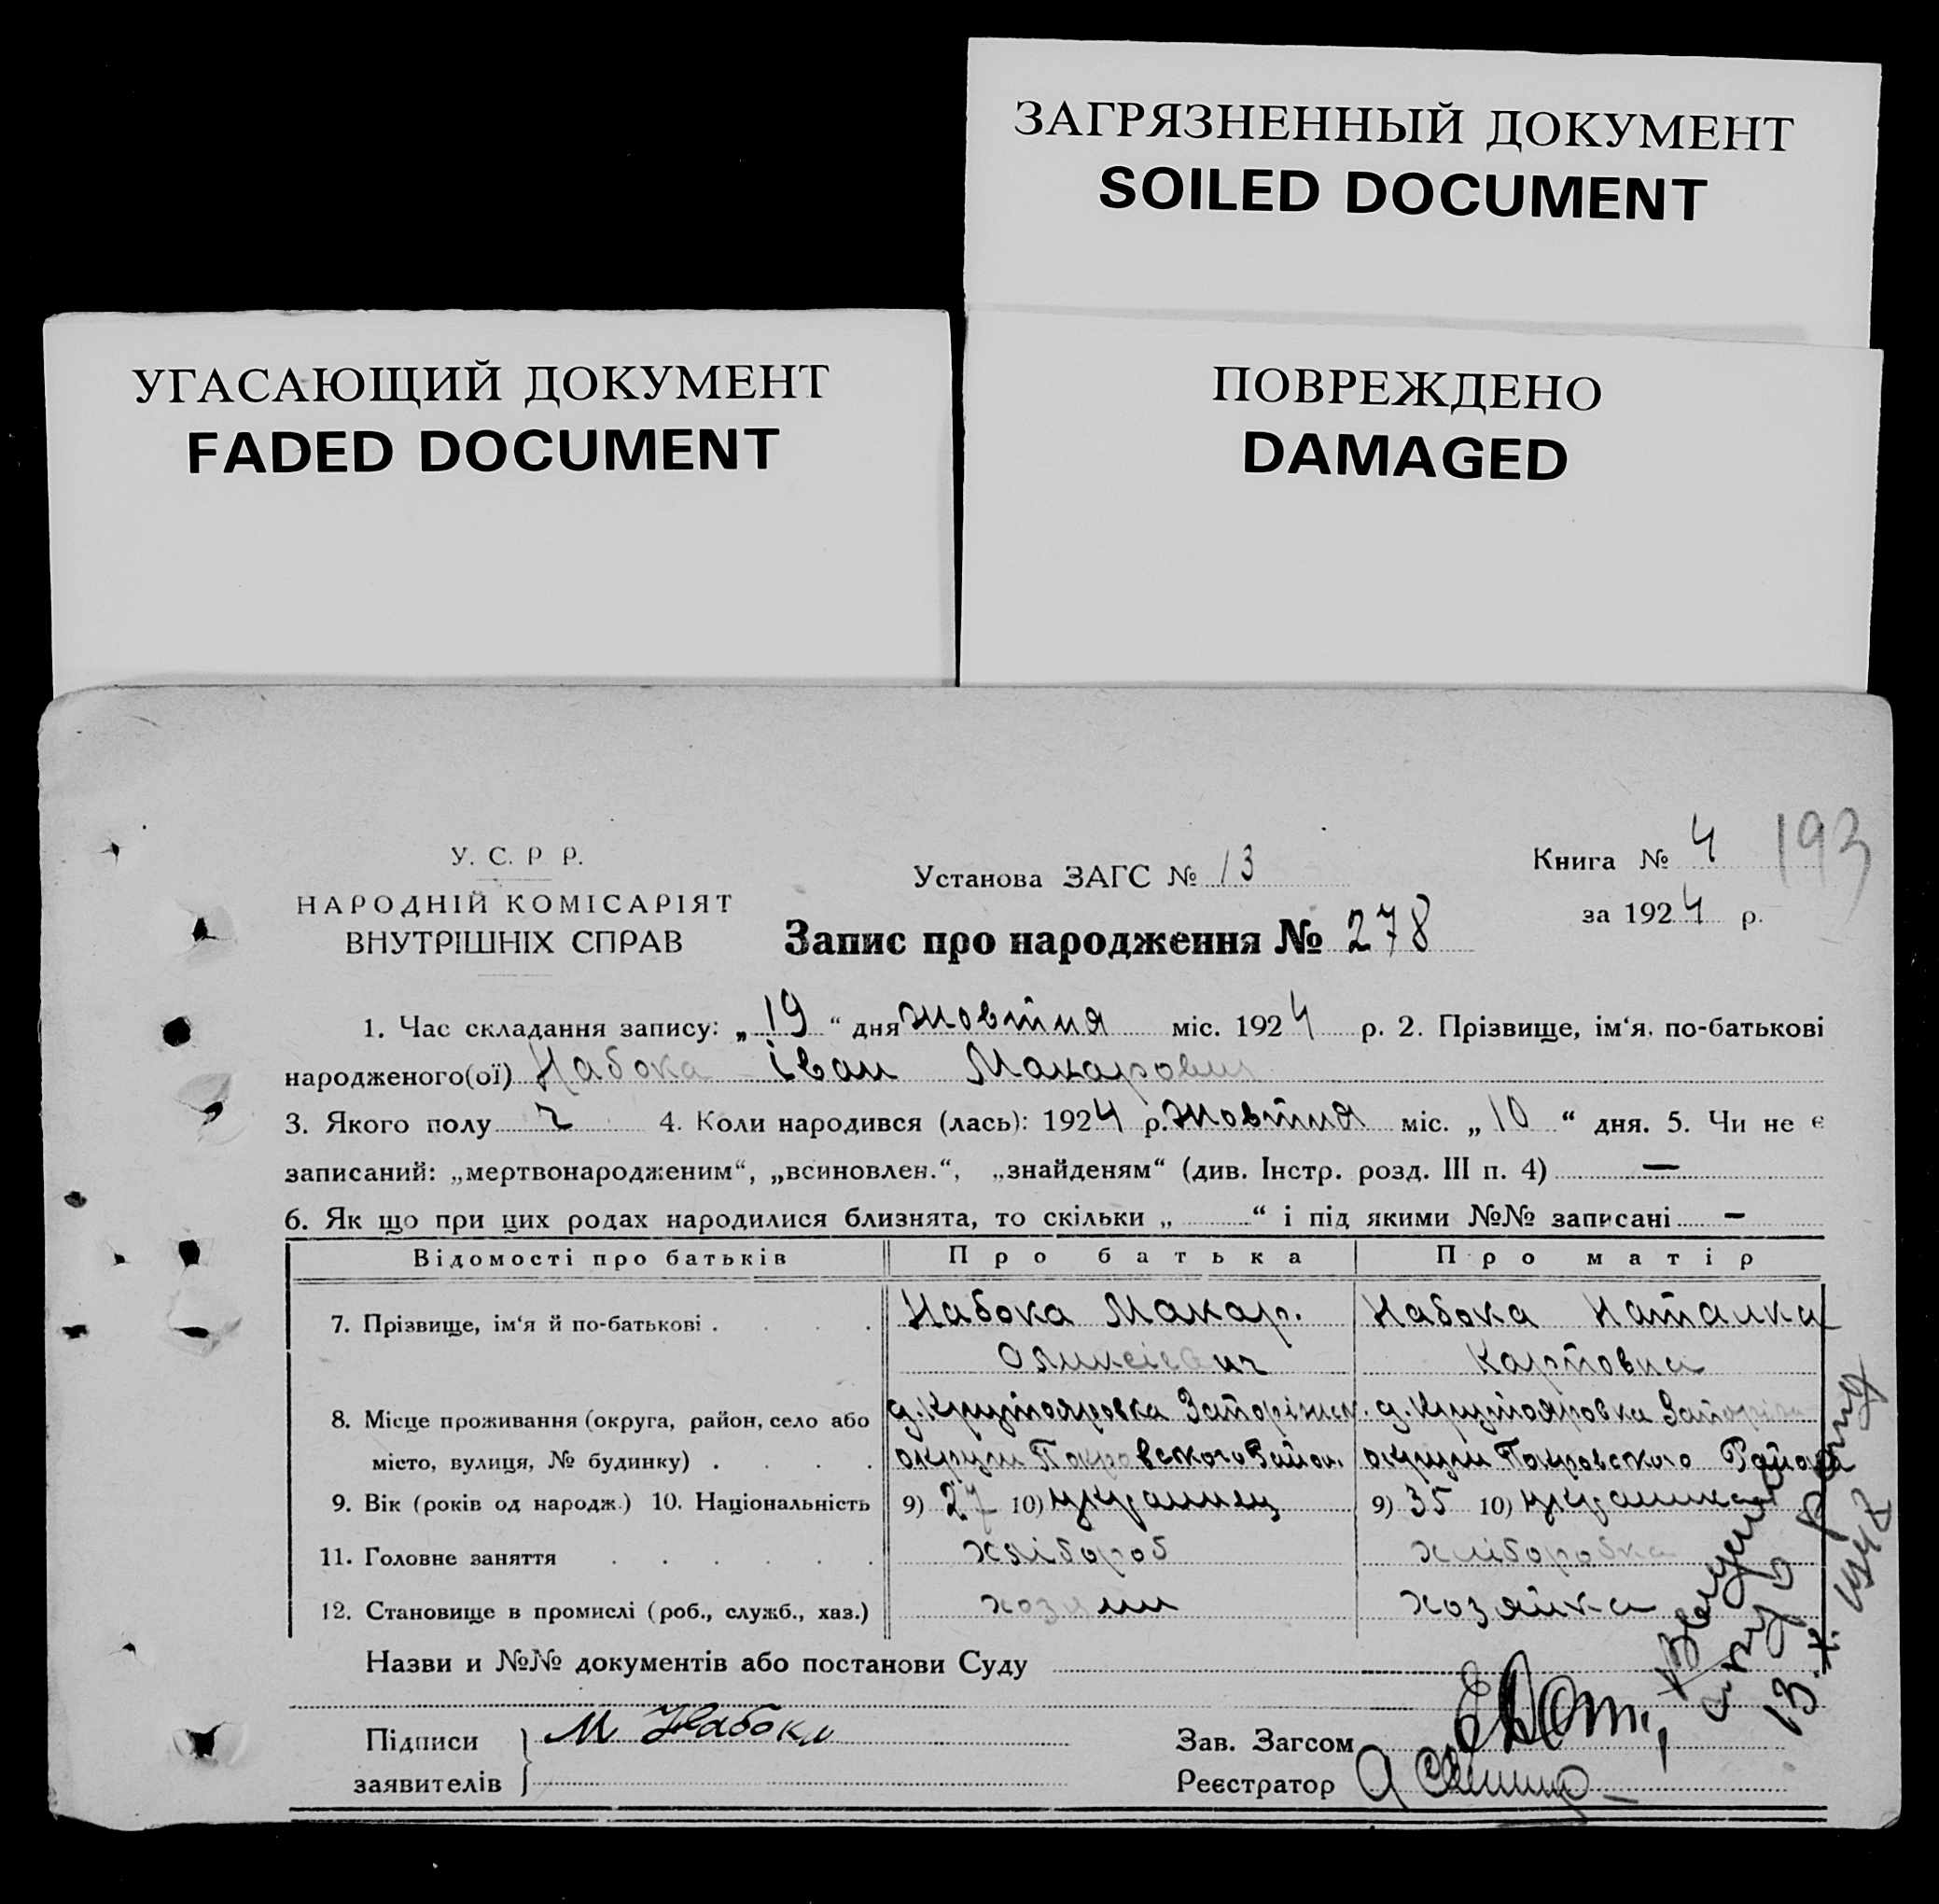 ЗАГРЯЗНЕННЫЙ ДОКУМЕНТ
SOILED DOCUMENT
УГАСАЮЩИЙ ДОКУМЕНТ
FADED DOCUMENT
ПОВРЕЖДЕНО
DAMAGED
У. С. Р Р.
НАРОДНІЙ КОМІСАРІЯТ
ВНУТРІШНІХ СПРАВ
Установа ЗАГС № 13
Запис про народження № 278
Книга № 4 193
за 1924 р.
1. Час складання запису: „19“ дня жовтня міс. 1924 р. 2. Прізвище, ім‘я, по-батькові
народженого(ої) Набока іван Макарович
3. Якого полу ч 4. Коли народився (лась): 1924 р. жовтня міс. „10“ дня. 5. Чи не є
записаний: „мертвонародженим“, „всиновлен.“, „знайденям“ (див. Інстр. розд. III п. 4) —
6. Як що при цих родах народилися близнята, то скільки „ “ і під якими №№ записані –
Відомості про батьків Про батька Про матір
7. Прізвище, ім‘я й по-батькові . . . . Набока Макар. Набока Наталка
Оликсієвич Карповна
8. Місце проживання (округа, район, село або д. Крутояровка Запоріжск. д. Крутояровка Запоріж
місто, вулиця, № будинку) . . . . округи Покровського Район. округи Покровського Района
9. Вік (років од народж.) 10. Національність 9) 27 10) украинец 9) 35 10) украинка
11. Головне заняття . . . . . . хлібороб хліборобка
12. Становище в промислі (роб., служб., хаз.) хозяин хозяйка
Назви и №№ документів або постанови Суду
Підписи М Набока
заявителів
Зав. Загсом
Реєстратор
13.X. 1948